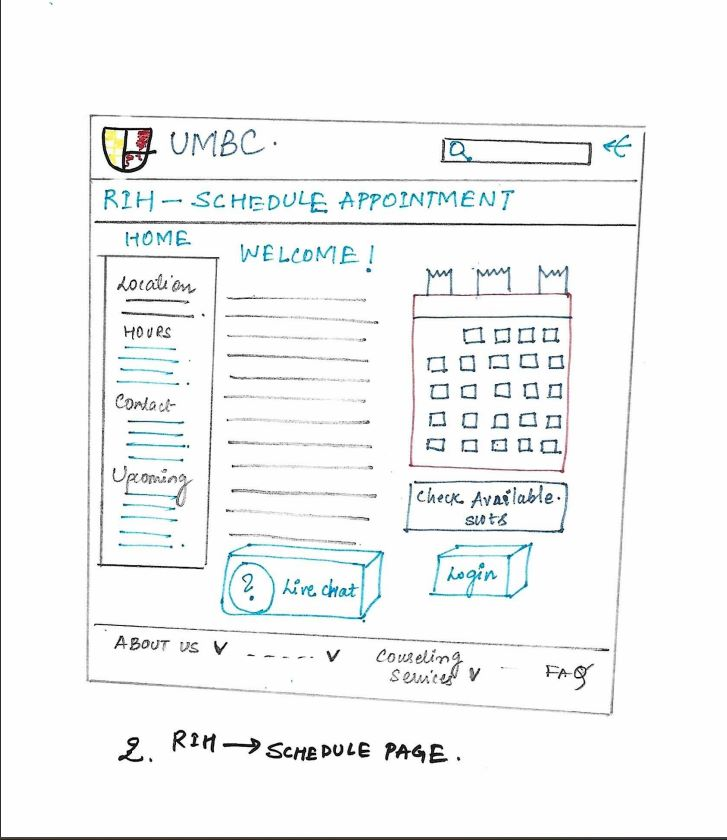 UMBC.
RIH - SCHEDULE APPOINTMENT
HOME
WELCOME!
Location
HOURS
Contact
Upcoming
Check Available.
slots
? Live chat
Login
ABOUT US V
----- V
Couseling
Services V
FAQ
2. RIH → SCHEDULE PAGE.